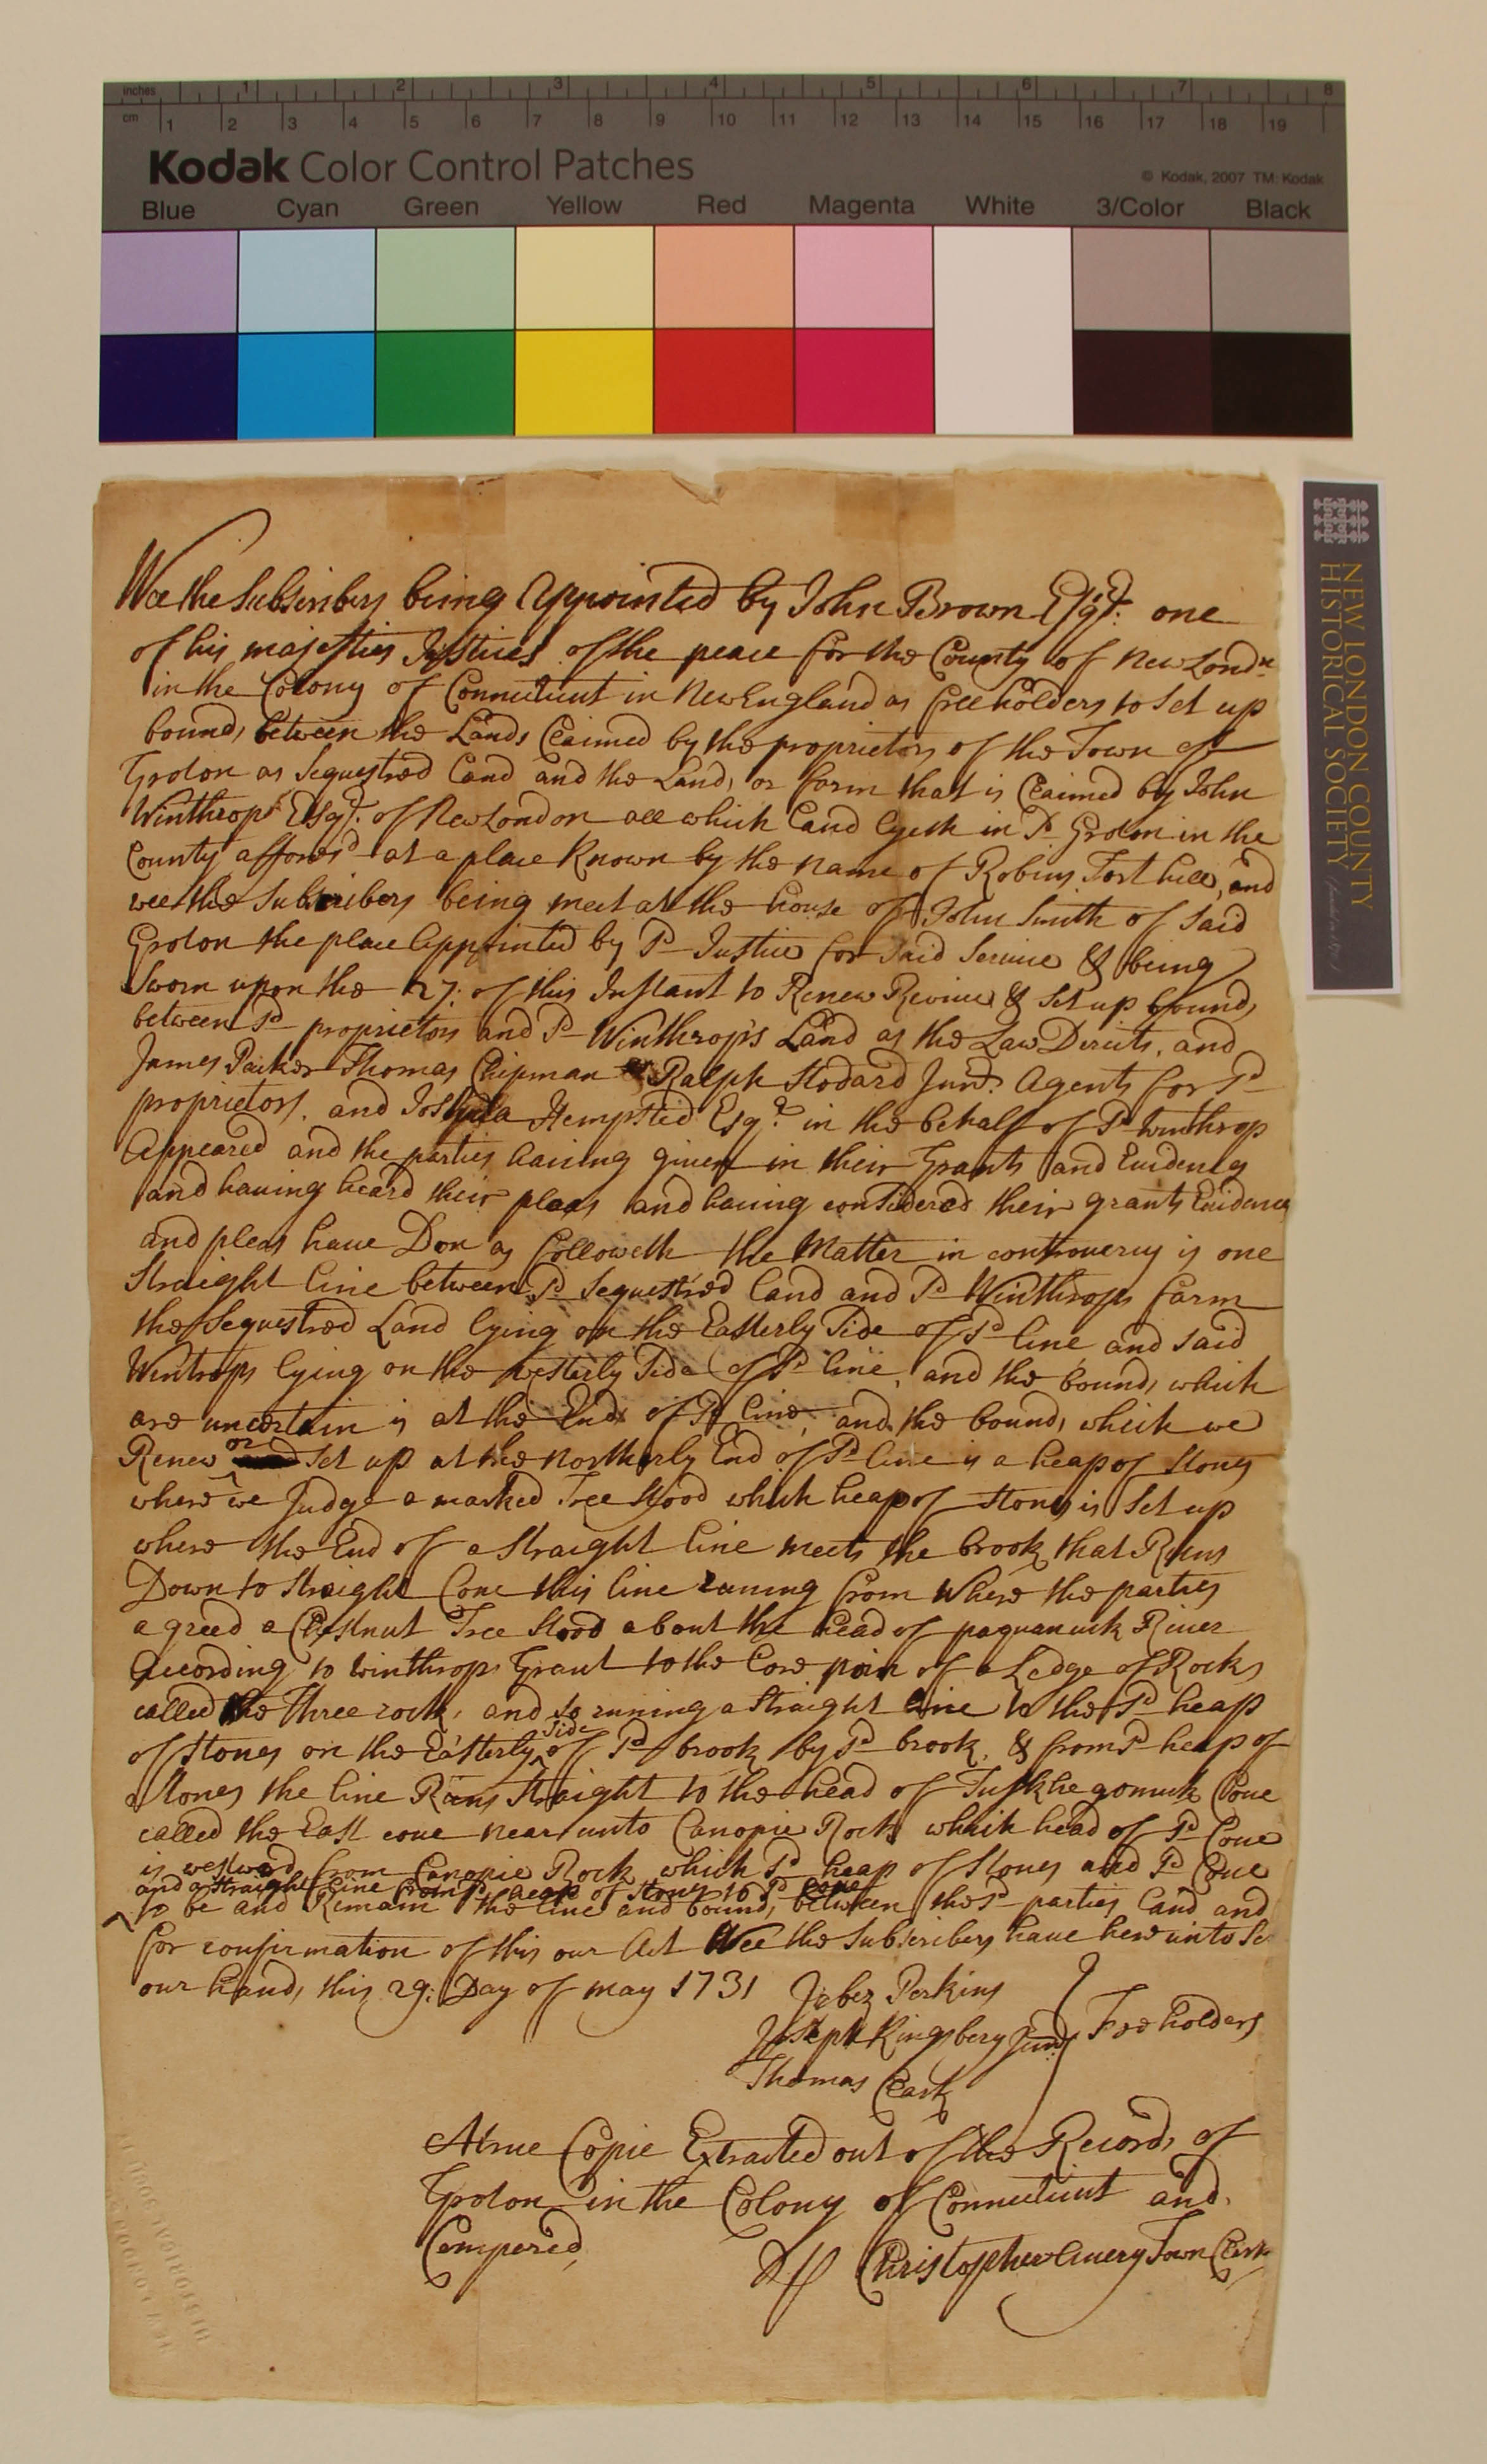 inches 1 2 3 4 5 6 7 8
cm 1 2 3 4 5 6 7 8 9 10 11 12 13 14 15 16 17 18 19
Kodak Color Control Patches
© Kodak, 2007 TM: Kodak
Blue Cyan Green Yellow Red Magenta White 3/Color Black
NEW LONDON COUNTY
HISTORICAL SOCIETY
Wee the Subscribers being Appointed by John Brown Esqr. one
of his majesties Justices of the peace for the County of New Londn
in the Colony of Connecticut in New England as freeholders to Set up
bounds between the Lands Claimed by the proprietors of the Town of
Groton as Sequestred Land and the Land, or farm that is Claimed by John
Winthrop Esqr. of New London all which Land lyeth in Sd Groton in the
County aforesd at a place Known by the name of Robins Fort hill, and
wee the Subscribers being meet at the house of John Smith of Said
Groton the place Appointed by Sd Justice for Said Service & being
Sworn upon the 27: of this Instant to Renew Revive & Set up bounds
between Sd proprietors and Sd Winthrops Land as the Law Directs, and
James Packer Thomas Chipman Ralph Stodard Junr. Agents for Sd
proprietors. and Joshua Hempsted Esqr. in the behalf of Sd Winthrop
Appeared and the parties having given in their Grants and Evidences
and having heard their pleas and having considered their grants Evidences
and pleas have Don as followeth the Matter in controvercy is one
Straight line between Sd Sequestred Land and Sd Winthrops farm
the Sequestred Land lying on the Easterly Side of Sd line and Said
Wintrops lying on the westerly Side of Sd line, and the bounds which
are uncertain is at the Ends of Sd line, and the bounds which we
Renew or Set up at the northerly End of Sd line is a heap of Stones
where we Judge a marked Tree Stood which heap of Stones is Set up
where the End of a Straight line meets the brook that Runs
Down to Straight Cove this line runing from Where the parties
agreed a Chestnut Tree Stood about the head of paquanuck River
According to Winthrops Grant to the of a Ledge of Rocks
called the Three rocks, and so runing a Straight line to the Sd heap
of Stones on the Easterly Side of Sd brook by Sd brook, & from Sd heap of
Stones the line Runs Straight to the head of Cove
called the East cove near unto Canopie Rock which head of Sd Cove
is westward from Canopie Rock which Sd heap of Stones and Sd Cove
and a straight line from Sd heap of Stones to Sd Cove
to be and Remain the line and bounds between the Sd parties Land and
for confirmation of this our Act Wee the Subscribers have hereunto Set
our hands this 29: Day of may 1731 Jabez Perkins
Joseph Kingsbery Junr Freeholders
Thomas Clark
A true Copie Extracted out of the Records of
Groton in the Colony of Connecticut and
Compered,
Christopher Avery Town Clerk